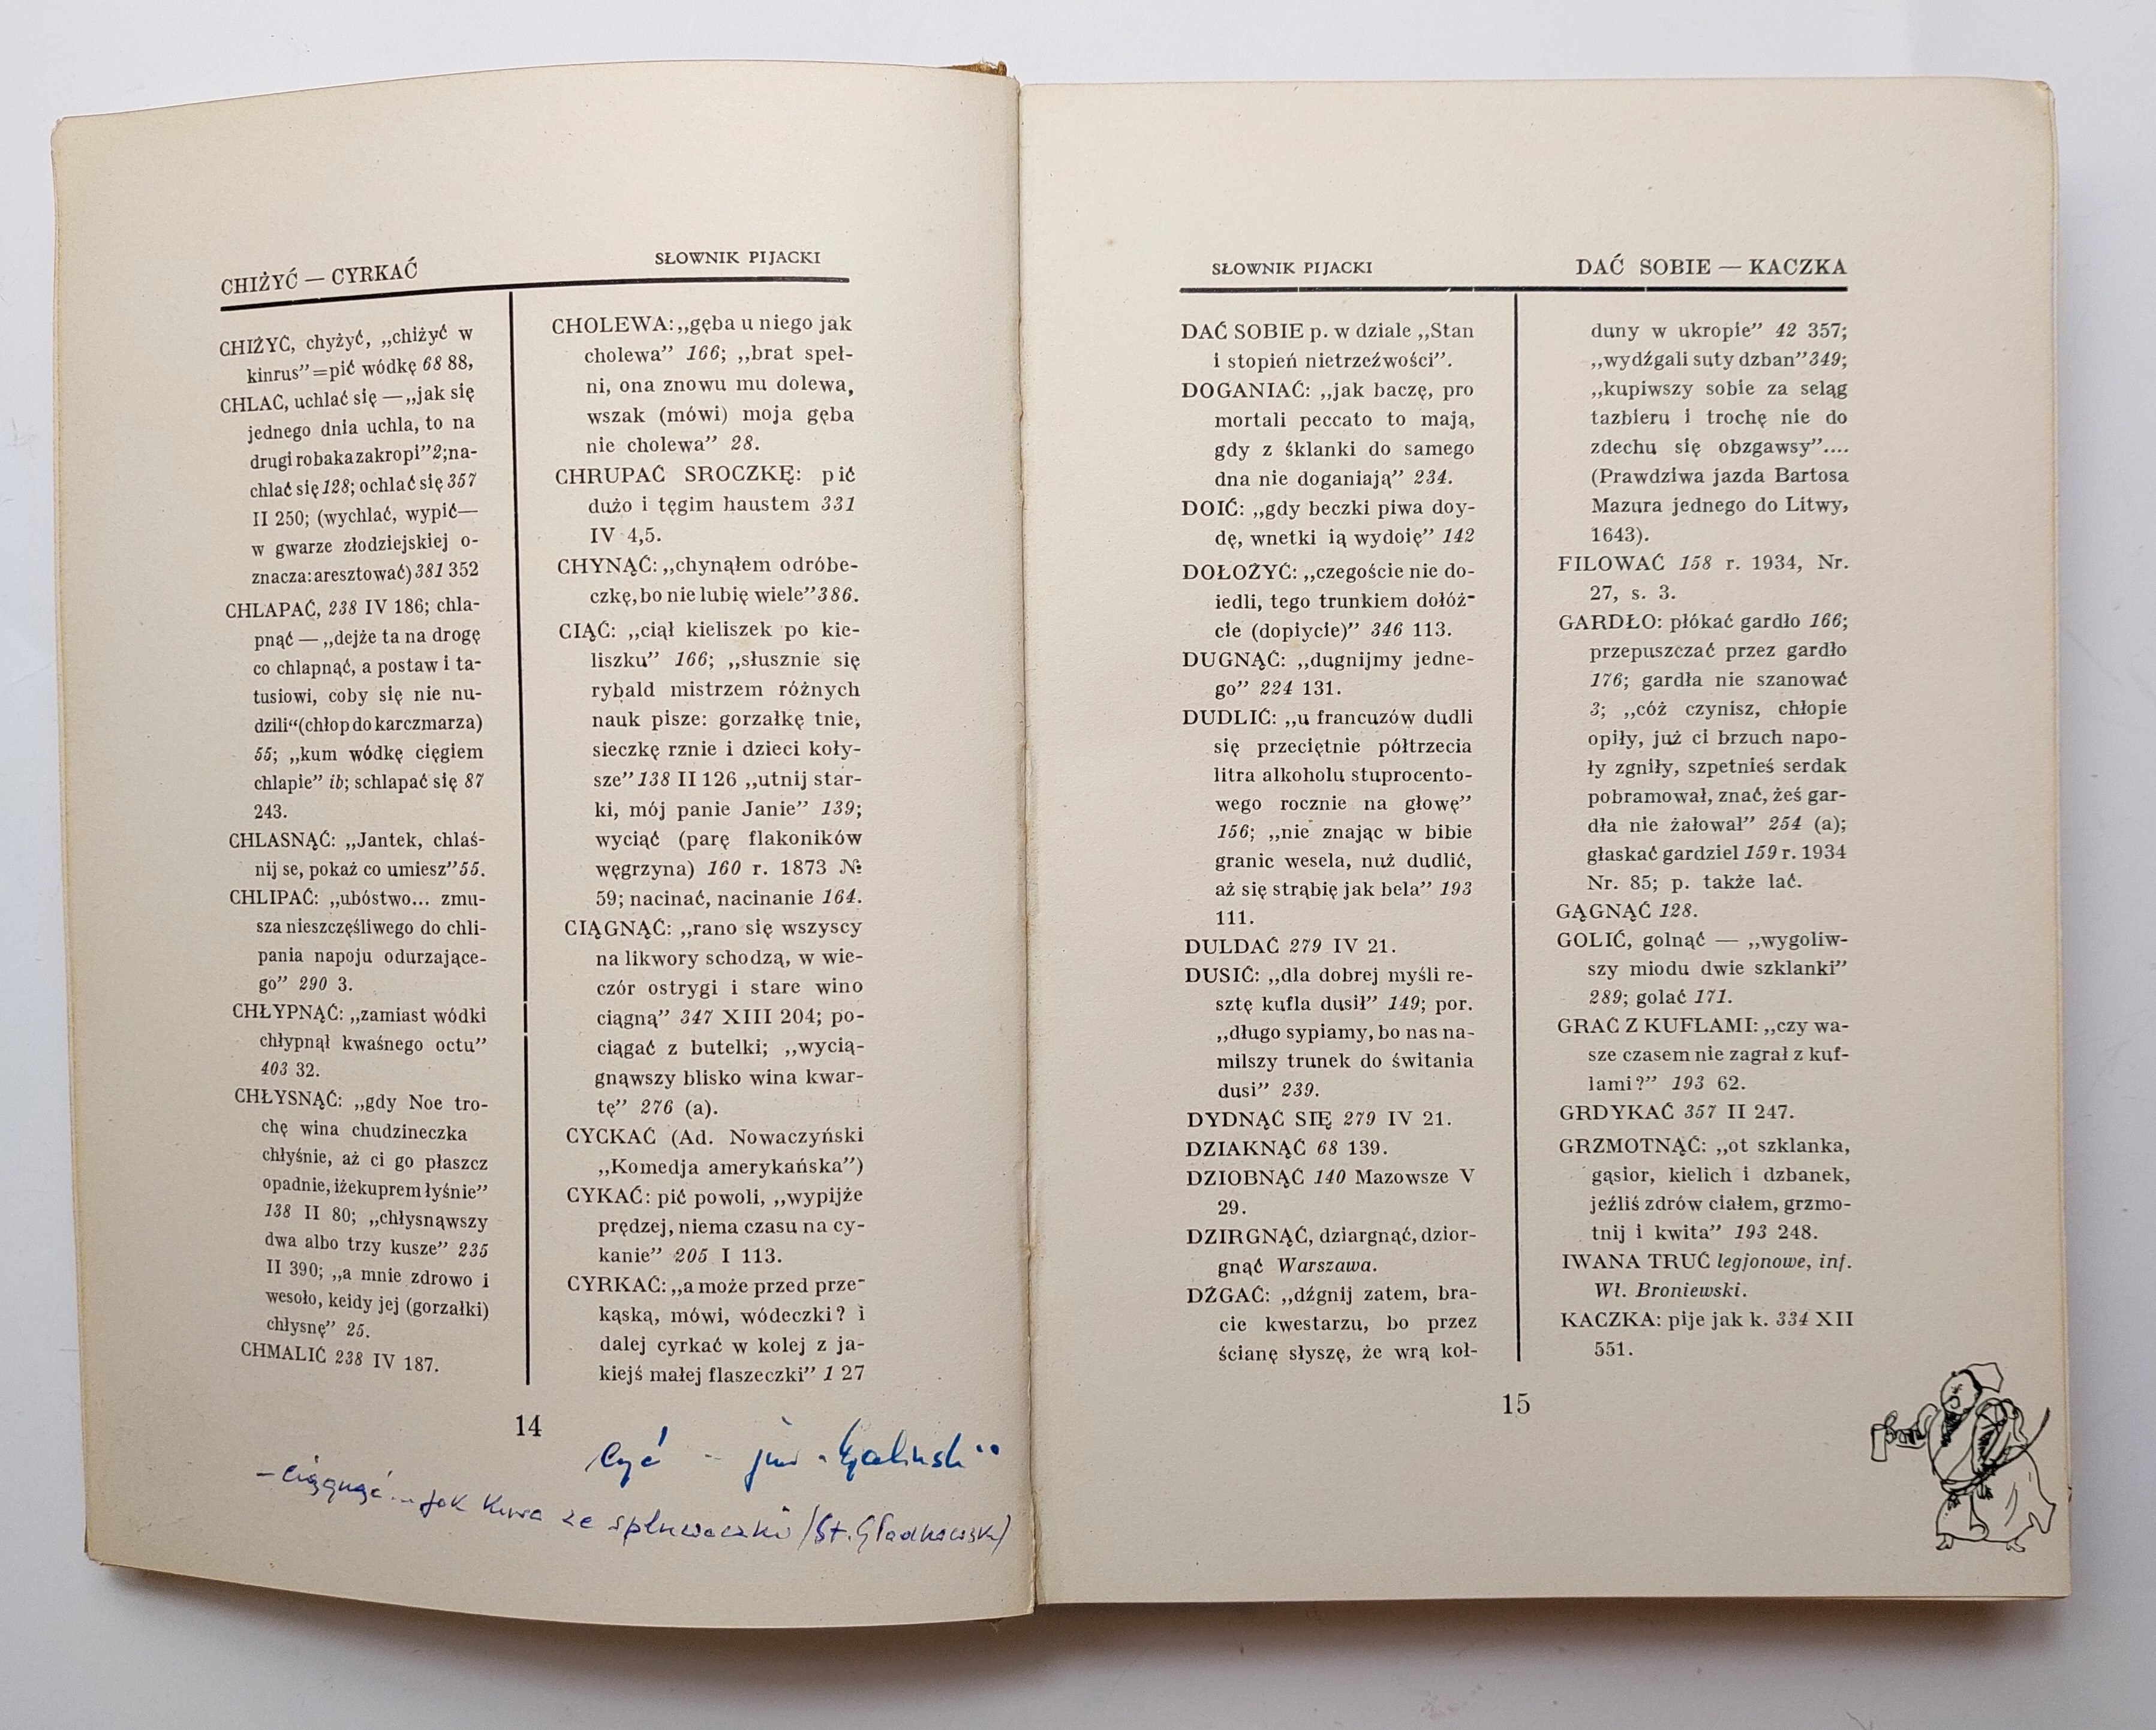 CHIŻYĆ — CYRKAĆ
SŁOWNIK PIJACKI
CHIŻYĆ, chyżyć, „chiżyć w
kinrus”=pić wódkę 68 88,
CHLAĆ, uchlać się —„jak się
jednego dnia uchla, to na
drugi robaka zakropi”2;na-
chlać się 128; ochlać się 357
II 250; (wychlać, wypić—
w gwarze złodziejskiej o-
znacza: aresztować) 381 352
CHLAPAĆ, 238 IV 186; chla-
pnąć — „dejże ta na drogę
co chlapnąć, a postaw i ta-
tusiowi, coby się nie nu-
dzili“(chłop do karczmarza)
55; „kum wódkę cięgiem
chlapie” ib; schlapać się 87
243.
CHLASNĄĆ: „Jantek, chlaś-
nij se, pokaż co umiesz”55.
CHLIPAĆ: „ubóstwo... zmu-
sza nieszczęśliwego do chli-
pania napoju odurzające-
go” 290 3.
CHŁYPNĄĆ: „zamiast wódki
chłypnął kwaśnego octu”
403 32.
CHŁYSNĄĆ: „gdy Noe tro-
chę wina chudzineczka
chłyśnie, aż ci go płaszcz
opadnie, iże kuprem łyśnie”
138 II 80; „chłysnąwszy
dwa albo trzy kusze” 235
II 390; „a mnie zdrowo i
wesoło, keidy jej (gorzałki)
chłysnę” 25.
CHMALIĆ 238 IV 187.
CHOLEWA: „gęba u niego jak
cholewa” 166; „brat speł-
ni, ona znowu mu dolewa,
wszak (mówi) moja gęba
nie cholewa” 28.
CHRUPAĆ SROCZKĘ: pić
dużo i tęgim haustem 331
IV 4,5.
CHYNĄĆ: „chynąłem odróbe-
czkę, bo nie lubię wiele”386.
CIĄĆ: „ciął kieliszek po kie-
liszku” 166; „słusznie się
rybałd mistrzem różnych
nauk pisze: gorzałkę tnie,
sieczkę rznie i dzieci koły-
sze” 138 II 126 „utnij star-
ki, mój panie Janie” 139;
wyciąć (parę flakoników
węgrzyna) 160 r. 1873 №
59; nacinać, nacinanie 164.
CIĄGNĄĆ: „rano się wszyscy
na likwory schodzą, w wie-
czór ostrygi i stare wino
ciągną” 347 XIII 204; po-
ciągać z butelki; „wycią-
gnąwszy blisko wina kwar-
tę” 276 (a).
CYCKAĆ (Ad. Nowaczyński
„Komedja amerykańska”)
CYKAĆ: pić powoli, „wypijże
prędzej, niema czasu na cy-
kanie” 205 I 113.
CYRKAĆ: „a może przed prze-
kąską, mówi, wódeczki? i
dalej cyrkać w kolej z ja-
kiejś małej flaszeczki” 1 27
14
– Ciągnąć... jak Kiwa ze spluwaczki (St. Gładkowski)
SŁOWNIK PIJACKI
DAĆ SOBIE — KACZKA
DAĆ SOBIE p. w dziale „Stan
i stopień nietrzeźwości”.
DOGANIAĆ: „jak baczę, pro
mortali peccato to mają,
gdy z śklanki do samego
dna nie doganiają” 234.
DOIĆ: „gdy beczki piwa doy-
dę, wnetki ią wydoię” 142
DOŁOŻYĆ: „czegoście nie do-
iedli, tego trunkiem dołóż-
cie (dopiycie)” 346 113.
DUGNĄĆ: „dugnijmy jedne-
go” 224 131.
DUDLIĆ: „u francuzów dudli
się przeciętnie półtrzecia
litra alkoholu stuprocento-
wego rocznie na głowę”
156; „nie znając w bibie
granic wesela, nuż dudlić,
aż się strąbię jak bela” 193
111.
DULDAĆ 279 IV 21.
DUSIĆ: „dla dobrej myśli re-
sztę kufla dusił” 149; por.
„długo sypiamy, bo nas na-
milszy trunek do świtania
dusi” 239.
DYDNĄĆ SIĘ 279 IV 21.
DZIAKNĄĆ 68 139.
DZIOBNĄĆ 140 Mazowsze V
29.
DZIRGNĄĆ, dziargnąć, dzior-
gnąć Warszawa.
DŹGAĆ: „dźgnij zatem, bra-
cie kwestarzu, bo przez
ścianę słyszę, że wrą koł-
duny w ukropie” 42 357;
„wydźgali suty dzban”349;
„kupiwszy sobie za seląg
tazbieru i trochę nie do
zdechu się obzgawsy”....
(Prawdziwa jazda Bartosa
Mazura jednego do Litwy,
1643).
FILOWAĆ 158 r. 1934, Nr.
27, s. 3.
GARDŁO: płókać gardło 166;
przepuszczać przez gardło
176; gardła nie szanować
3; „cóż czynisz, chłopie
opiły, już ci brzuch napo-
ły zgniły, szpetnieś serdak
pobramował, znać, żeś gar-
dła nie żałował” 254 (a);
głaskać gardziel 159 r. 1934
Nr. 85; p. także lać.
GĄGNĄĆ 128.
GOLIĆ, golnąć — „wygoliw-
szy miodu dwie szklanki”
289; golać 171.
GRAĆ Z KUFLAMI: „czy wa-
sze czasem nie zagrał z kuf-
lami?” 193 62.
GRDYKAĆ 357 II 247.
GRZMOTNĄĆ: „ot szklanka,
gąsior, kielich i dzbanek,
jeźliś zdrów ciałem, grzmo-
tnij i kwita” 193 248.
IWANA TRUĆ legjonowe, inf.
Wł. Broniewski.
KACZKA: pije jak k. 334 XII
551.
15